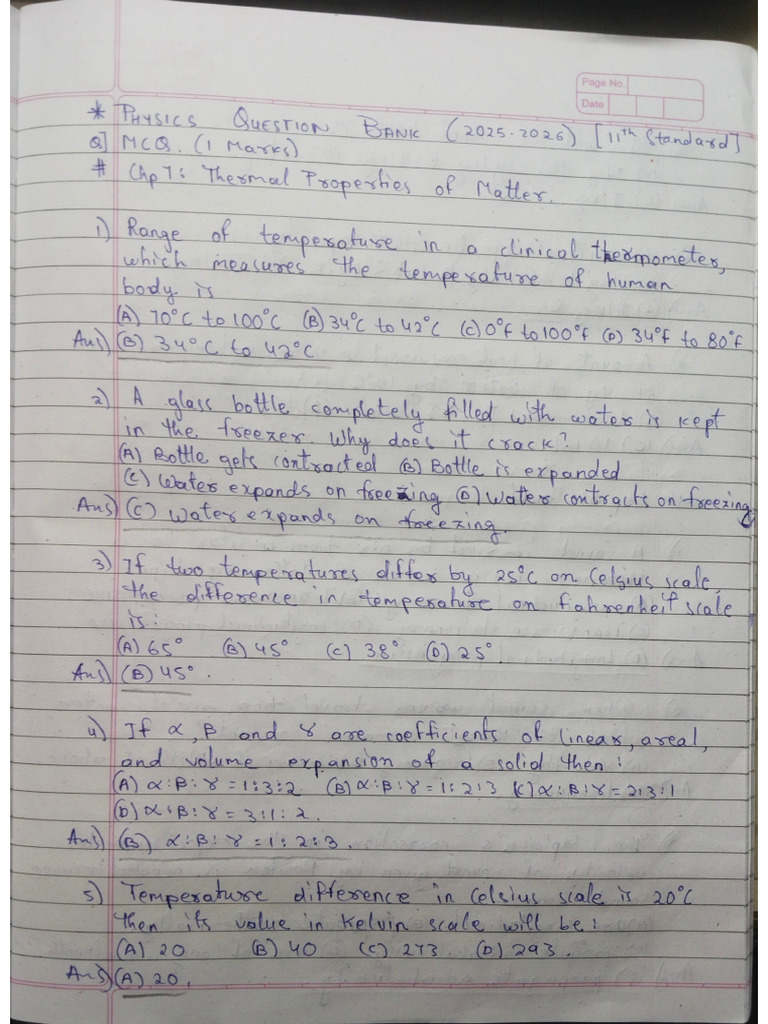 Page No.
Date
* PHYSICS QUESTION BANK (2025-2026) [11th Standard]
Q] MCQ. (1 Marks)
# Chp 7: Thermal Properties of Matter.
1) Range of temperature in a clinical thermometer,
which measures the temperature of human
body is
(A) 70°C to 100°C (B) 34°C to 42°C (C) 0°F to 100°F (D) 34°F to 80°F
Ans) (B) 34°C to 42°C
2) A glass bottle completely filled with water is kept
in the freezer. Why does it crack?
(A) Bottle gets contracted (B) Bottle is expanded
(C) Water expands on freezing (D) Water contracts on freezing
Ans) (C) Water expands on freezing.
3) If two temperatures differ by 25°C on Celsius scale,
the difference in temperature on fahrenheit scale
is:
(A) 65° (B) 45° (C) 38° (D) 25°.
Ans) (B) 45°.
4) If α, β and γ are coefficients of linear, areal,
and volume expansion of a solid then:
(A) α:β:γ = 1:3:2 (B) α:β:γ = 1:2:3 (C) α:β:γ = 2:3:1
(D) α:β:γ = 3:1:2.
Ans) (B) α:β:γ = 1:2:3.
5) Temperature difference in Celsius scale is 20°C
then its value in Kelvin scale will be:
(A) 20 (B) 40 (C) 273. (D) 293.
Ans) (A) 20.